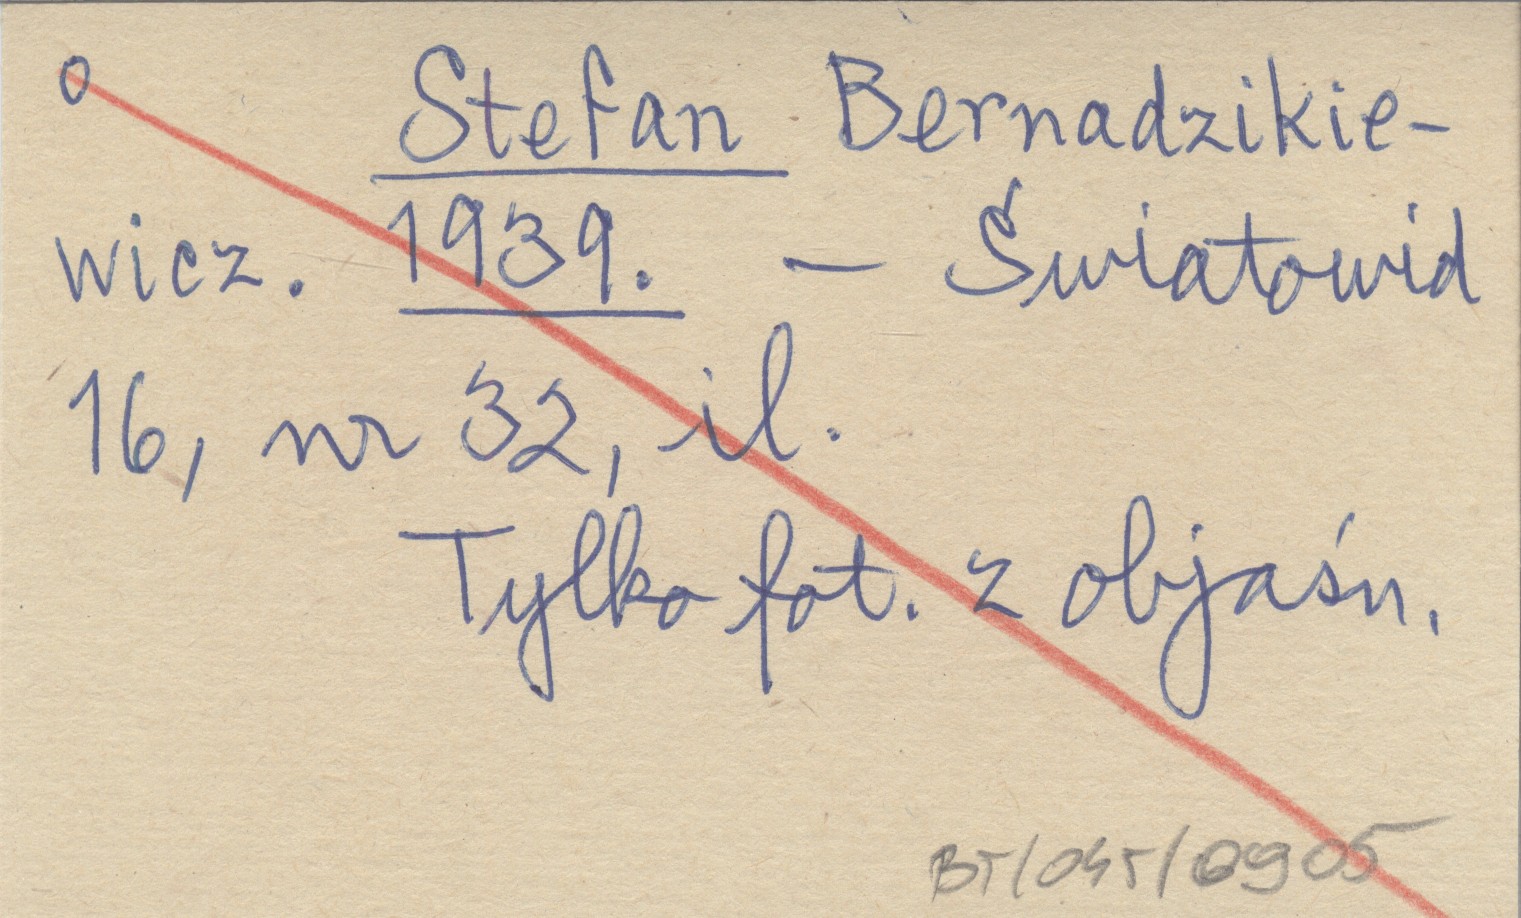 o Stefan Bernadzikie-
wicz. 1939. — Światowid
16, nr 32, il.
Tylko fot. z objaśn.
BT/04T/0905